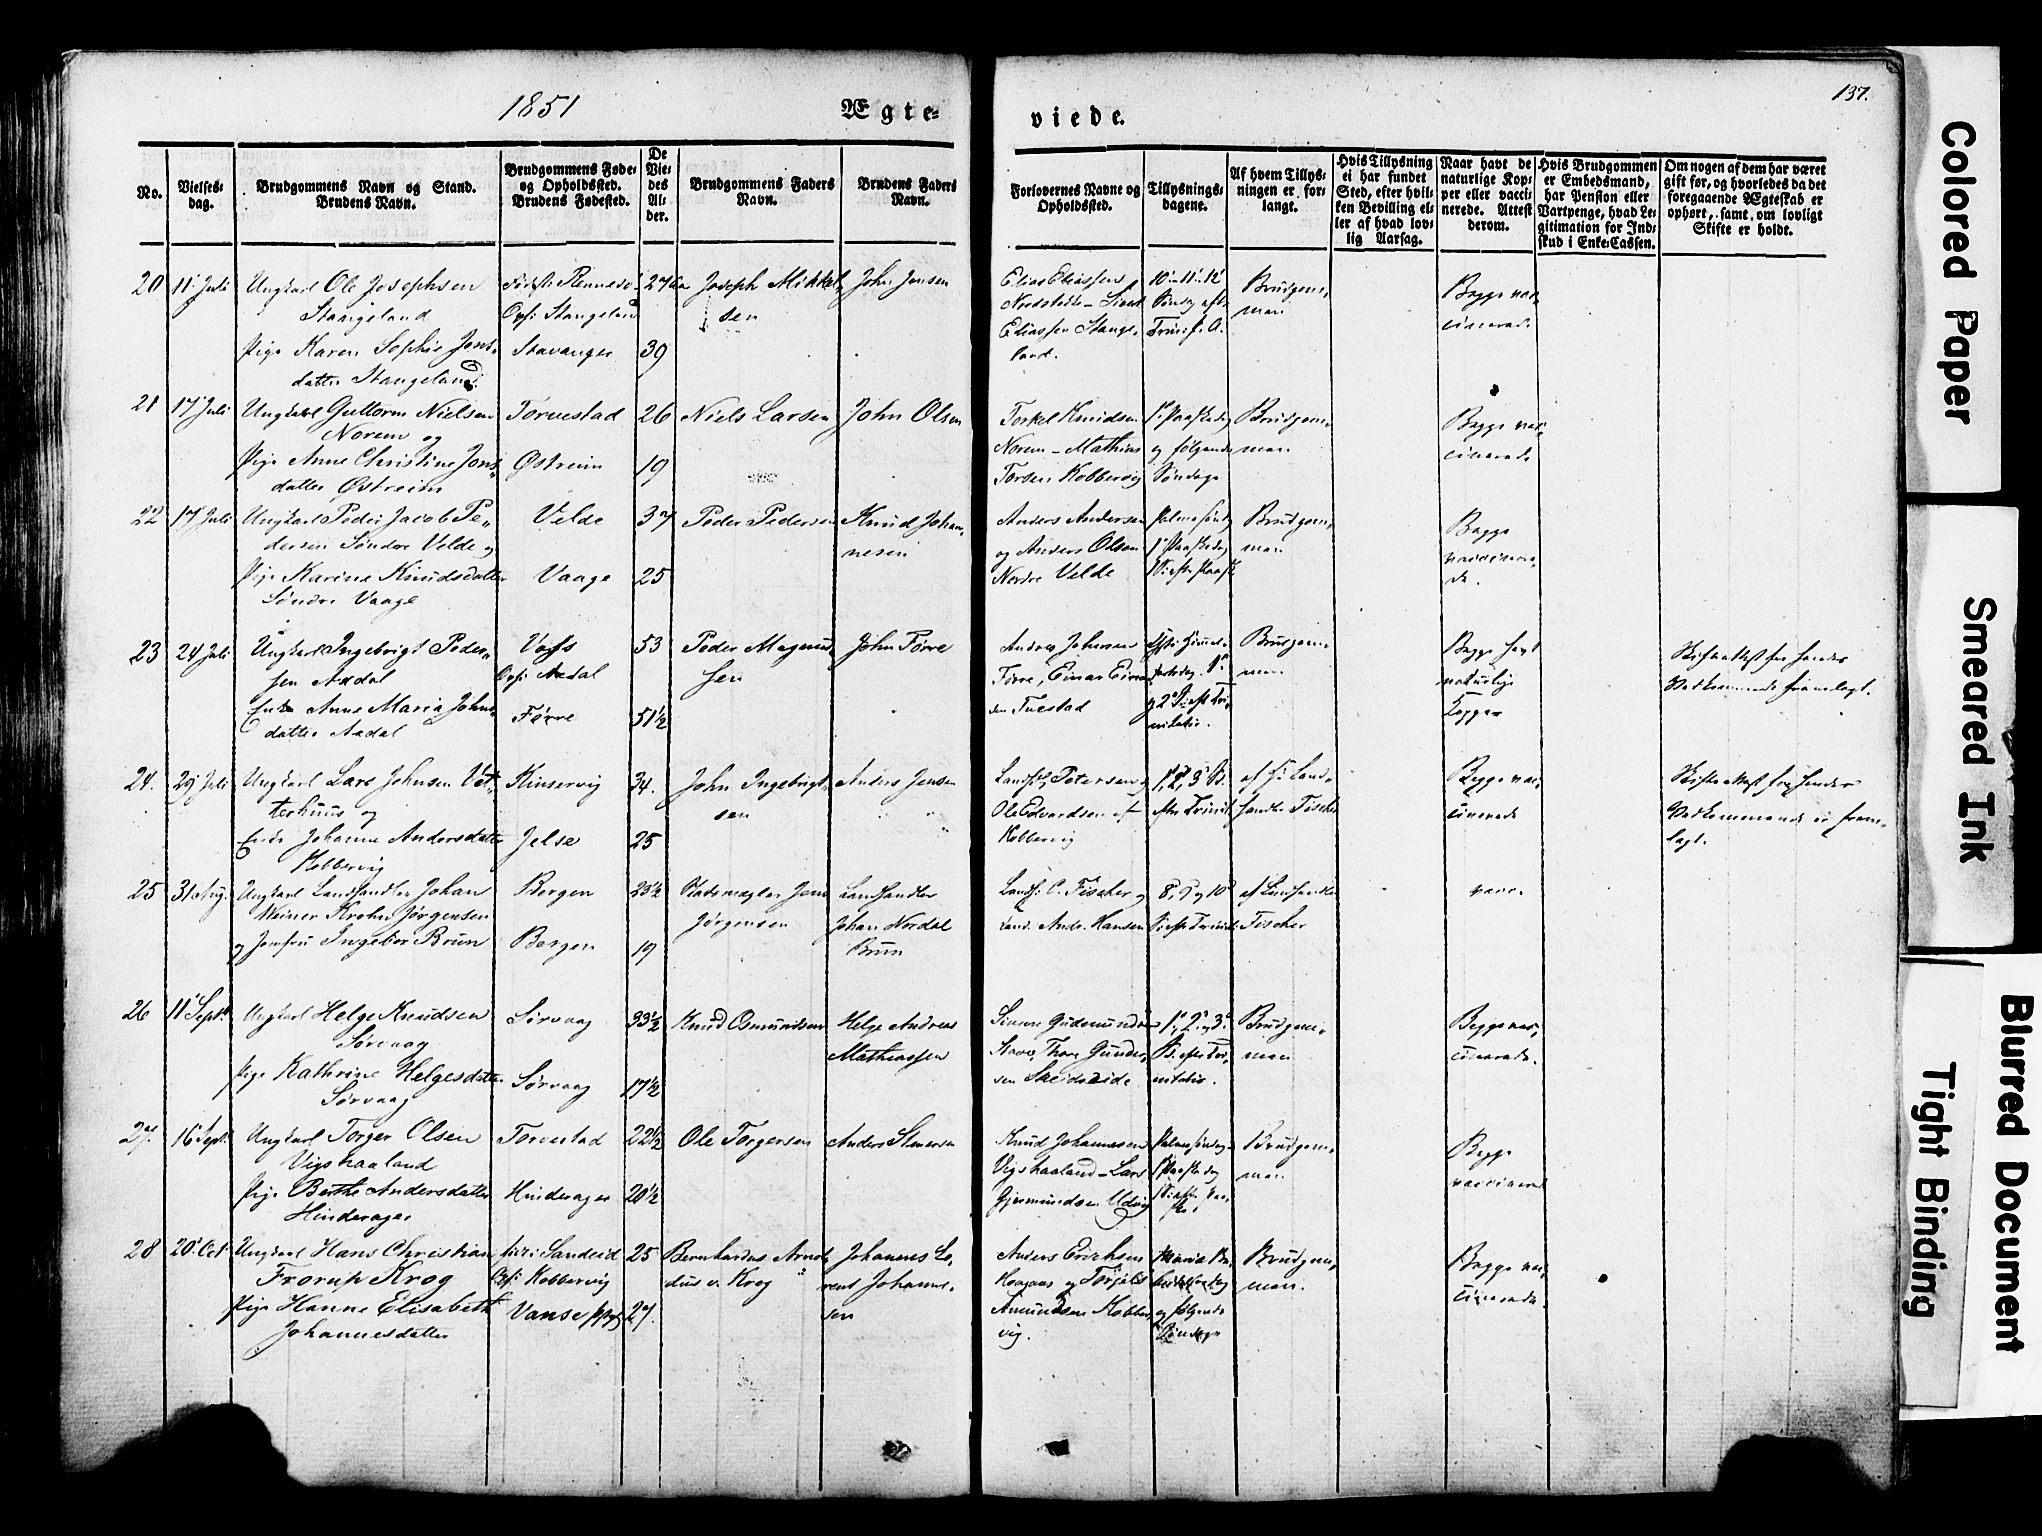 1851
Ægte-
viede.
137.
No.
Vielses-
dag.
Brudgommens Navn og Stand.
Brudens Navn.
Brudgommens Føde-
og Opholdssted.
Brudens Fødested.
De
Vie-
des
Al-
der.
Brudgommens Faders
Navn.
Brudens Faders
Navn.
Forlovernes Navne og
Opholdssted.
Tillysnings-
dagene.
Af hvem Tillys-
ningen er for-
langt.
Hvis Tillysning
ei har fundet
Sted, efter hvil-
ken Bevilling el-
ler af hvad lov-
lig Aarsag.
Naar havt de
naturlige Kop-
per eller vacci-
nerede. Attest
derom.
Hvis Brudgommen
er Embedsmand,
har Pension eller
Vartpenge, hvad Le-
gitimation for Ind-
skud i Enke-Cassen.
Om nogen af dem har været
gift før, og hvorledes da det
foregaaende Ægteskab er
ophørt, samt om lovligt
Skifte er holdt.
20 11 Juli Ungkarl Ole Josephsen
Stangeland
Pige Karen Sophie Jons-
datter Stangeland
Føds: Rennesø
Ops: Stangeland
Stavanger
27
39
Joseph Mikkel-
sen
John Jonsen
Elias Eliassen
Eliassen Stange-
land.
10 11 12
Trinit.
Brudgom-
men
Begge vac-
cinerede
21 17 Juli Ungkarl Guttorm Nielsen
Norem og
Pige Anne Christine Jons-
datter Østreim
Torvestad
Østreim
26
19
Niels Larsen
John Olsen
Torkel Knudsen
Norem - Mathias
Torsen Kobbervig
1 Paaskedag
og følgende
Søndage
Brudgom-
men
Begge vac-
cinerede
22 17 Juli Ungkarl Peder Jacob Pe-
dersen Søndre Velde og
Pige Karine Knudsdatter
Søndre Vaage
Velde
Vaage
37
25
Peder Pedersen
Knud Johan-
nesen
Anders Andersen
og Anders Olsen
Nordre Velde
Palmesønd
1 Paaskedag
Brudgom-
men
Begge
vaccinere-
de.
23 24 Juli Ungkarl Ingebrigt Peder-
sen Aadal
Enke Anne Maria Johns-
datter Aadal
Voss
Ops: Aadal
Førre
53
51½
Peder Magnus-
sen
John Førre
Andrea Johnsen
Førre, Einar Einar-
sen Tuestad
og 2
Brudgom-
men
Begge havt
naturlige
Kopper
Skifteattest fra
Vedkommende fremlagt.
24. 29 Juli Ungkarl Lars Johnsen Vet-
terhuus og
Enke Johanne Andersdatter
Kobbervig
Kinservig
Jelse
34.
25
John Ingebrigt-
sen
Anders Jensen
Landh. Petersen og
Ole Edvardsen
Kobbervig
1, 2, 3
efter Trinit
af Hr Land-
handler Fischer
Begge vac-
cinerede
Skifteattest fra
Vedkommende er frem-
lagt.
25 31 Aug. Ungkarl Landhandler Johan
Meiner Krohn Jørgensen
og Jomfru Ingebor Brun
Bergen
Bergen
23½
19
Jens
Jørgensen
Landhandler
Johan Nordal
Brun
Landh. C. Fischer og
Landh. Andr. Hansen
8, 9 og 10
af Landhandler
Fischer
vacc.
26 11 Sept. Ungkarl Helge Knudsen
Sørvaag
Pige Kathrine Helgesdatter
Sørvaag
Sørvaag
Sørvaag
33½
17½
Knud Osmundsen
Helge Andreas
Mathiassen
Simon Gudmundsen
Thore Gunder-
sen Skeidsvide
1, 2 og 3
S. efter Tri-
nitatis.
Brudgom-
men
Begge vac-
cinerede.
27. 16 Sept. Ungkarl Torger Olsen
Vigshaaland
Pige Berthe Andersdatter
Hinderager
Torvestad
Hinderager
22½
20½
Ole Torgersen
Anders Simonsen
Knud Johannesen
Vigshaaland - Lars
Gjermundsen Udvig
Palmesøndag
1 Paaskedag
Brudgom-
men.
Begge
vaccinered
28 20 Oct Ungkarl Hans Christian
Frorup Krog
Pige Hanne Elisabeth
Johannesdatter
Sandeid
Ops: Kobbervig
Vanse
25
27.
Bernhardus Arnol-
dus v. Krog
Johannes Lo-
rent Johanne-
sen
Anders Erichsen
Haagaas og Torjels
Amundsen Kobber-
vig.
Maria Be-
og følgende
Søndage
Brudgom-
men.
Begge vac-
cinerede.
Colored Paper
Smeared Ink
Blurred Document
Tight Binding